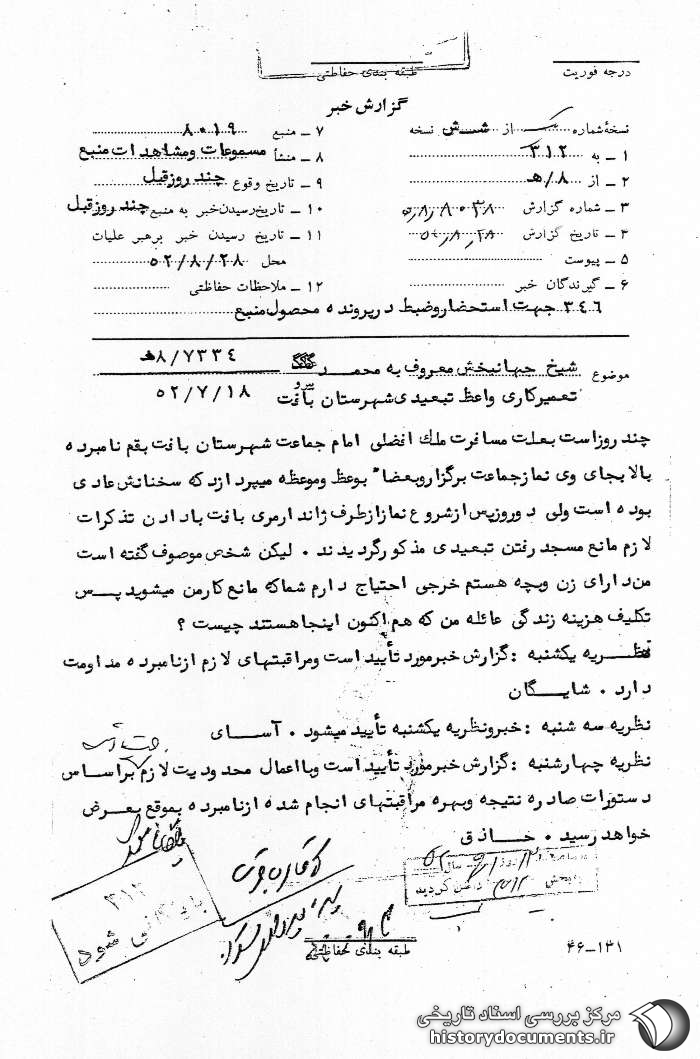 طبقه بندی حفاظتی
درجه فوریت
گزارش خبر
نسخهٔ شماره یک از شش نسخه
۱ ـ به ۳۱۲
۲ ـ از ۸/ه‍
۳ ـ شماره گزارش
۴ ـ تاریخ گزارش
۵ ـ پیوست
۶ ـ گیرندگان خبر
۷ ـ منبع ۸۰۱۹
۸ ـ منشأ مسموعات ومشاهدات منبع
۹ ـ تاریخ وقوع چند روزقبل
۱۰ ـ تاریخ رسیدن خبر به منبع چند روزقبل
۱۱ ـ تاریخ رسیدن خبر برهبر عملیات
محل ۵۲/۸/۲۸
۱۲ ـ ملاحظات حفاظتی
۳۴۶ جهت استحضار وضبط درپرونده محصول منبع
موضوع شیخ جهانبخش معروف به محمد ۸/۷۳۳۴ه‍
تعمیرکاری واعظ تبعیدی شهرستان بافت ۵۲/۷/۱۸
چند روزاست بعلت مسافرت ملك افضلی امام جماعت شهرستان بافت بقم نامبرده
بالا بجای وی نمازجماعت برگزاروبعضاً بوعظ وموعظه میپردازد که سخنانش عادی
بوده است ولی دوروزپس ازشروع نمازازطرف ژاندارمری بافت بادادن تذکرات
لازم مانع مسجد رفتن تبعیدی مذکورگردیدند . لیکن شخص موصوف گفته است
من دارای زن وبچه هستم خرجی احتیاج دارم شماکه مانع کارمن میشوید پس
تکلیف هزینه زندگی عائله من که هم اکنون اینجا هستند چیست ؟
نظریه یکشنبه : گزارش خبرمورد تأیید است ومراقبتهای لازم ازنامبرده مداومت
دارد . شایگان
نظریه سه شنبه : خبرونظریه یکشنبه تأیید میشود . آسای
نظریه چهارشنبه : گزارش خبرمورد تأیید است وبااعمال محدودیت لازم براساس
دستورات صادره نتیجه وبهره مراقبتهای انجام شده ازنامبرده بموقع بعرض
خواهد رسید . حاذق
۳۱۲
بایگانی شود
طبقه بندی حفاظتی
۴۶-۱۳۱
مرکز بررسی اسناد تاریخی
historydocuments.ir